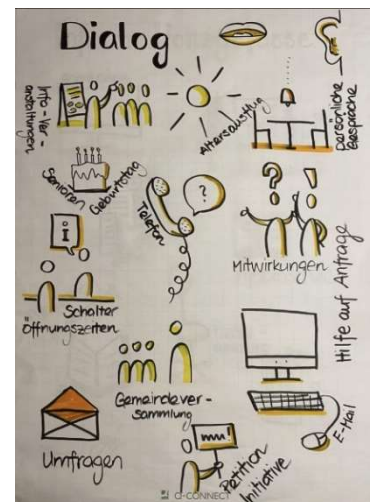 Dialog
Info-Ver-
anstaltungen
Altersausflug
persönliche
Gespräche
Senioren
Geburtstag
Telefon
?
? !
Mitwirkungen
i
Schalter
öffnungszeiten
Hilfe auf Anfrage
Gemeindever-
sammlung
E-Mail
Umfragen
Petition
Initiative
CI-CONNECT